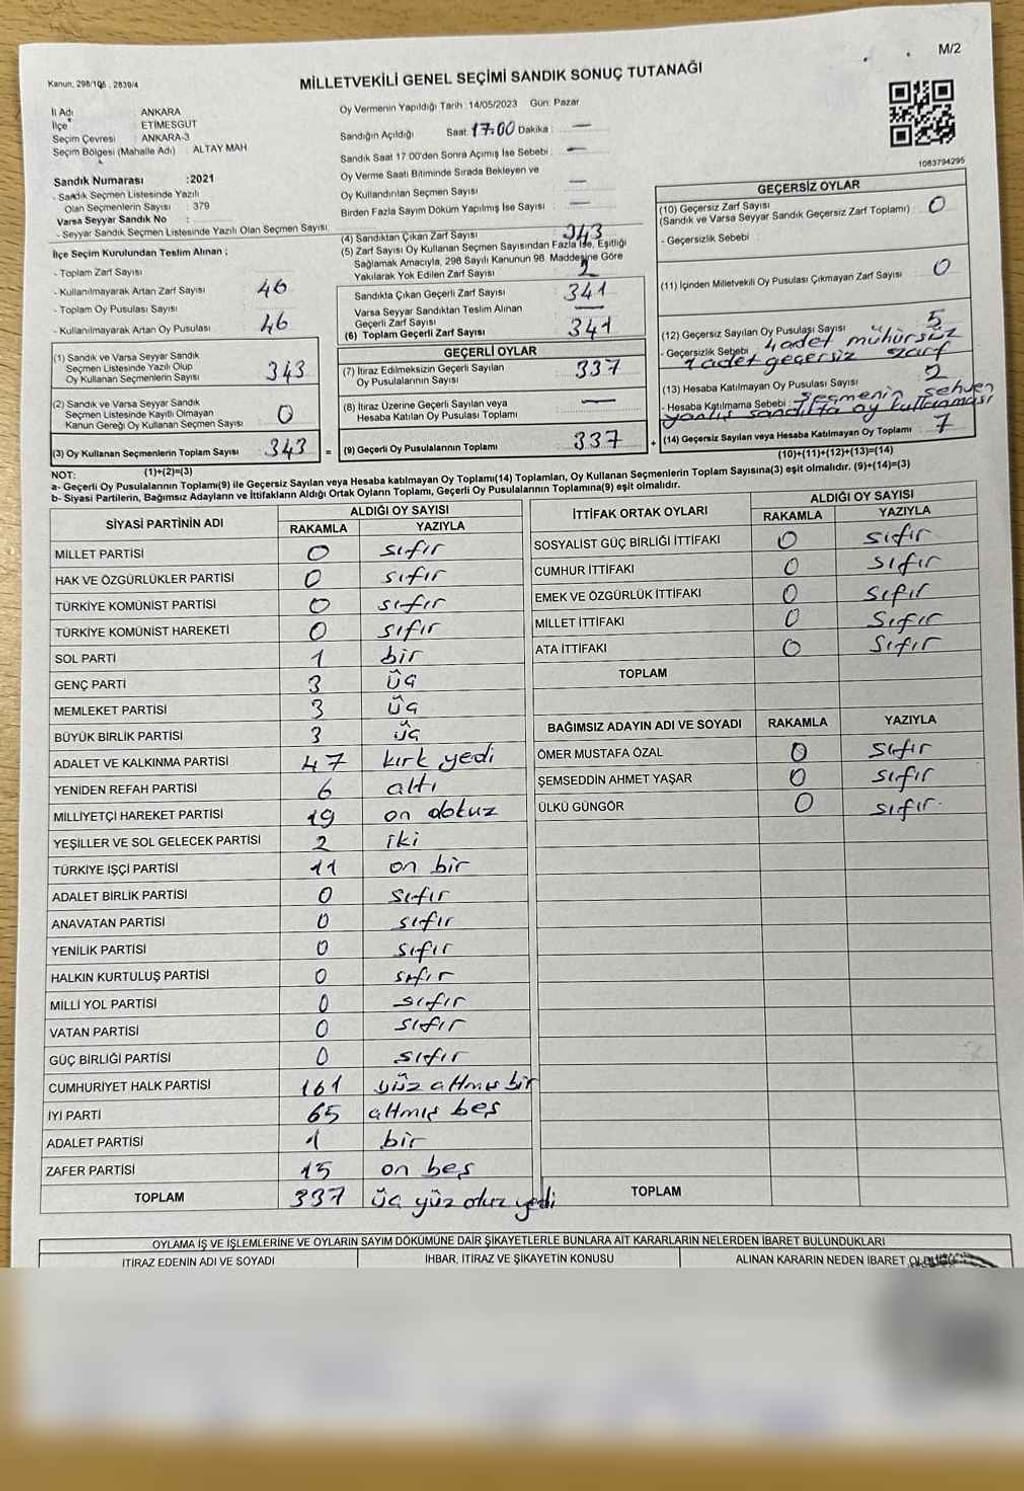 M/2
Kanun: 298/105 , 2839/4
MİLLETVEKİLİ GENEL SEÇİMİ SANDIK SONUÇ TUTANAĞI
İl Adı ANKARA
İlçe ETİMESGUT
Seçim Çevresi ANKARA-3
Seçim Bölgesi (Mahalle Adı) : ALTAY MAH
Sandık Numarası :2021
- Sandık Seçmen Listesinde Yazılı
Olan Seçmenlerin Sayısı : 379
Varsa Seyyar Sandık No :
- Seyyar Sandık Seçmen Listesinde Yazılı Olan Seçmen Sayısı
Oy Vermenin Yapıldığı Tarih :14/05/2023 Gün: Pazar
Sandığın Açıldığı Saat: 17:00 Dakika : —
Sandık Saat 17:00'den Sonra Açımış İse Sebebi : —
Oy Verme Saati Bitiminde Sırada Bekleyen ve
Oy Kullandırılan Seçmen Sayısı —
Birden Fazla Sayım Döküm Yapılmış İse Sayısı : —
1083794295
İlçe Seçim Kurulundan Teslim Alınan ;
- Toplam Zarf Sayısı
- Kullanılmayarak Artan Zarf Sayısı 46
- Toplam Oy Pusulası Sayısı
- Kullanılmayarak Artan Oy Pusulası 46
(1) Sandık ve Varsa Seyyar Sandık
Seçmen Listesinde Yazılı Olup
Oy Kullanan Seçmenlerin Sayısı 343
(2) Sandık ve Varsa Seyyar Sandık
Seçmen Listesinde Kayıtlı Olmayan
Kanun Gereği Oy Kullanan Seçmen Sayısı 0
(3) Oy Kullanan Seçmenlerin Toplam Sayısı 343 =
(1)+(2)=(3)
(4) Sandıktan Çıkan Zarf Sayısı 343
(5) Zarf Sayısı Oy Kullanan Seçmen Sayısından Fazla İse, Eşitliği
Sağlamak Amacıyla, 298 Sayılı Kanunun 98. Maddesine Göre
Yakılarak Yok Edilen Zarf Sayısı 2
Sandıkta Çıkan Geçerli Zarf Sayısı 341
Varsa Seyyar Sandıktan Teslim Alınan
Geçerli Zarf Sayısı —
(6) Toplam Geçerli Zarf Sayısı 341
GEÇERLİ OYLAR
(7) İtiraz Edilmeksizin Geçerli Sayılan
Oy Pusulalarının Sayısı 337
(8) İtiraz Üzerine Geçerli Sayılan veya
Hesaba Katılan Oy Pusulası Toplamı —
(9) Geçerli Oy Pusulalarının Toplamı 337 +
GEÇERSİZ OYLAR
(10) Geçersiz Zarf Sayısı
(Sandık ve Varsa Seyyar Sandık Geçersiz Zarf Toplamı) : 0
- Geçersizlik Sebebi :
(11) İçinden Milletvekili Oy Pusulası Çıkmayan Zarf Sayısı 0
(12) Geçersiz Sayılan Oy Pusulası Sayısı 5
- Geçersizlik Sebebi 4 adet mühürsüz
1 adet geçersiz zarf
(13) Hesaba Katılmayan Oy Pusulası Sayısı 2
- Hesaba Katılmama Sebebi : Seçmenin sehven
yanlış sandıkta oy kullanması
(14) Geçersiz Sayılan veya Hesaba Katılmayan Oy Toplamı 7
(10)+(11)+(12)+(13)=(14)
NOT:
a- Geçerli Oy Pusulalarının Toplamı(9) ile Geçersiz Sayılan veya Hesaba katılmayan Oy Toplamı(14) Toplamları, Oy Kullanan Seçmenlerin Toplam Sayısına(3) eşit olmalıdır. (9)+(14)=(3)
b- Siyasi Partilerin, Bağımsız Adayların ve İttifakların Aldığı Ortak Oyların Toplamı, Geçerli Oy Pusulalarının Toplamına(9) eşit olmalıdır.
SİYASİ PARTİNİN ADI ALDIĞI OY SAYISI
RAKAMLA YAZIYLA
MİLLET PARTİSİ 0 sıfır
HAK VE ÖZGÜRLÜKLER PARTİSİ 0 sıfır
TÜRKİYE KOMÜNİST PARTİSİ 0 sıfır
TÜRKİYE KOMÜNİST HAREKETİ 0 sıfır
SOL PARTİ 1 bir
GENÇ PARTİ 3 üç
MEMLEKET PARTİSİ 3 üç
BÜYÜK BİRLİK PARTİSİ 3 üç
ADALET VE KALKINMA PARTİSİ 47 kırk yedi
YENİDEN REFAH PARTİSİ 6 altı
MİLLİYETÇİ HAREKET PARTİSİ 19 on dokuz
YEŞİLLER VE SOL GELECEK PARTİSİ 2 iki
TÜRKİYE İŞÇİ PARTİSİ 11 on bir
ADALET BİRLİK PARTİSİ 0 sıfır
ANAVATAN PARTİSİ 0 sıfır
YENİLİK PARTİSİ 0 sıfır
HALKIN KURTULUŞ PARTİSİ 0 sıfır
MİLLİ YOL PARTİSİ 0 sıfır
VATAN PARTİSİ 0 sıfır
GÜÇ BİRLİĞİ PARTİSİ 0 sıfır
CUMHURİYET HALK PARTİSİ 161 yüz altmış bir
İYİ PARTİ 65 altmış beş
ADALET PARTİSİ 1 bir
ZAFER PARTİSİ 15 on beş
TOPLAM 337 üç yüz otuz yedi
İTTİFAK ORTAK OYLARI ALDIĞI OY SAYISI
RAKAMLA YAZIYLA
SOSYALİST GÜÇ BİRLİĞİ İTTİFAKI 0 sıfır
CUMHUR İTTİFAKI 0 sıfır
EMEK VE ÖZGÜRLÜK İTTİFAKI 0 sıfır
MİLLET İTTİFAKI 0 sıfır
ATA İTTİFAKI 0 sıfır
TOPLAM
BAĞIMSIZ ADAYIN ADI VE SOYADI RAKAMLA YAZIYLA
ÖMER MUSTAFA ÖZAL 0 sıfır
ŞEMSEDDİN AHMET YAŞAR 0 sıfır
ÜLKÜ GÜNGÖR 0 sıfır
TOPLAM
OYLAMA İŞ VE İŞLEMLERİNE VE OYLARIN SAYIM DÖKÜMÜNE DAİR ŞİKAYETLERLE BUNLARA AİT KARARLARIN NELERDEN İBARET BULUNDUKLARI
İTİRAZ EDENİN ADI VE SOYADI İHBAR, İTİRAZ VE ŞİKAYETİN KONUSU ALINAN KARARIN NEDEN İBARET